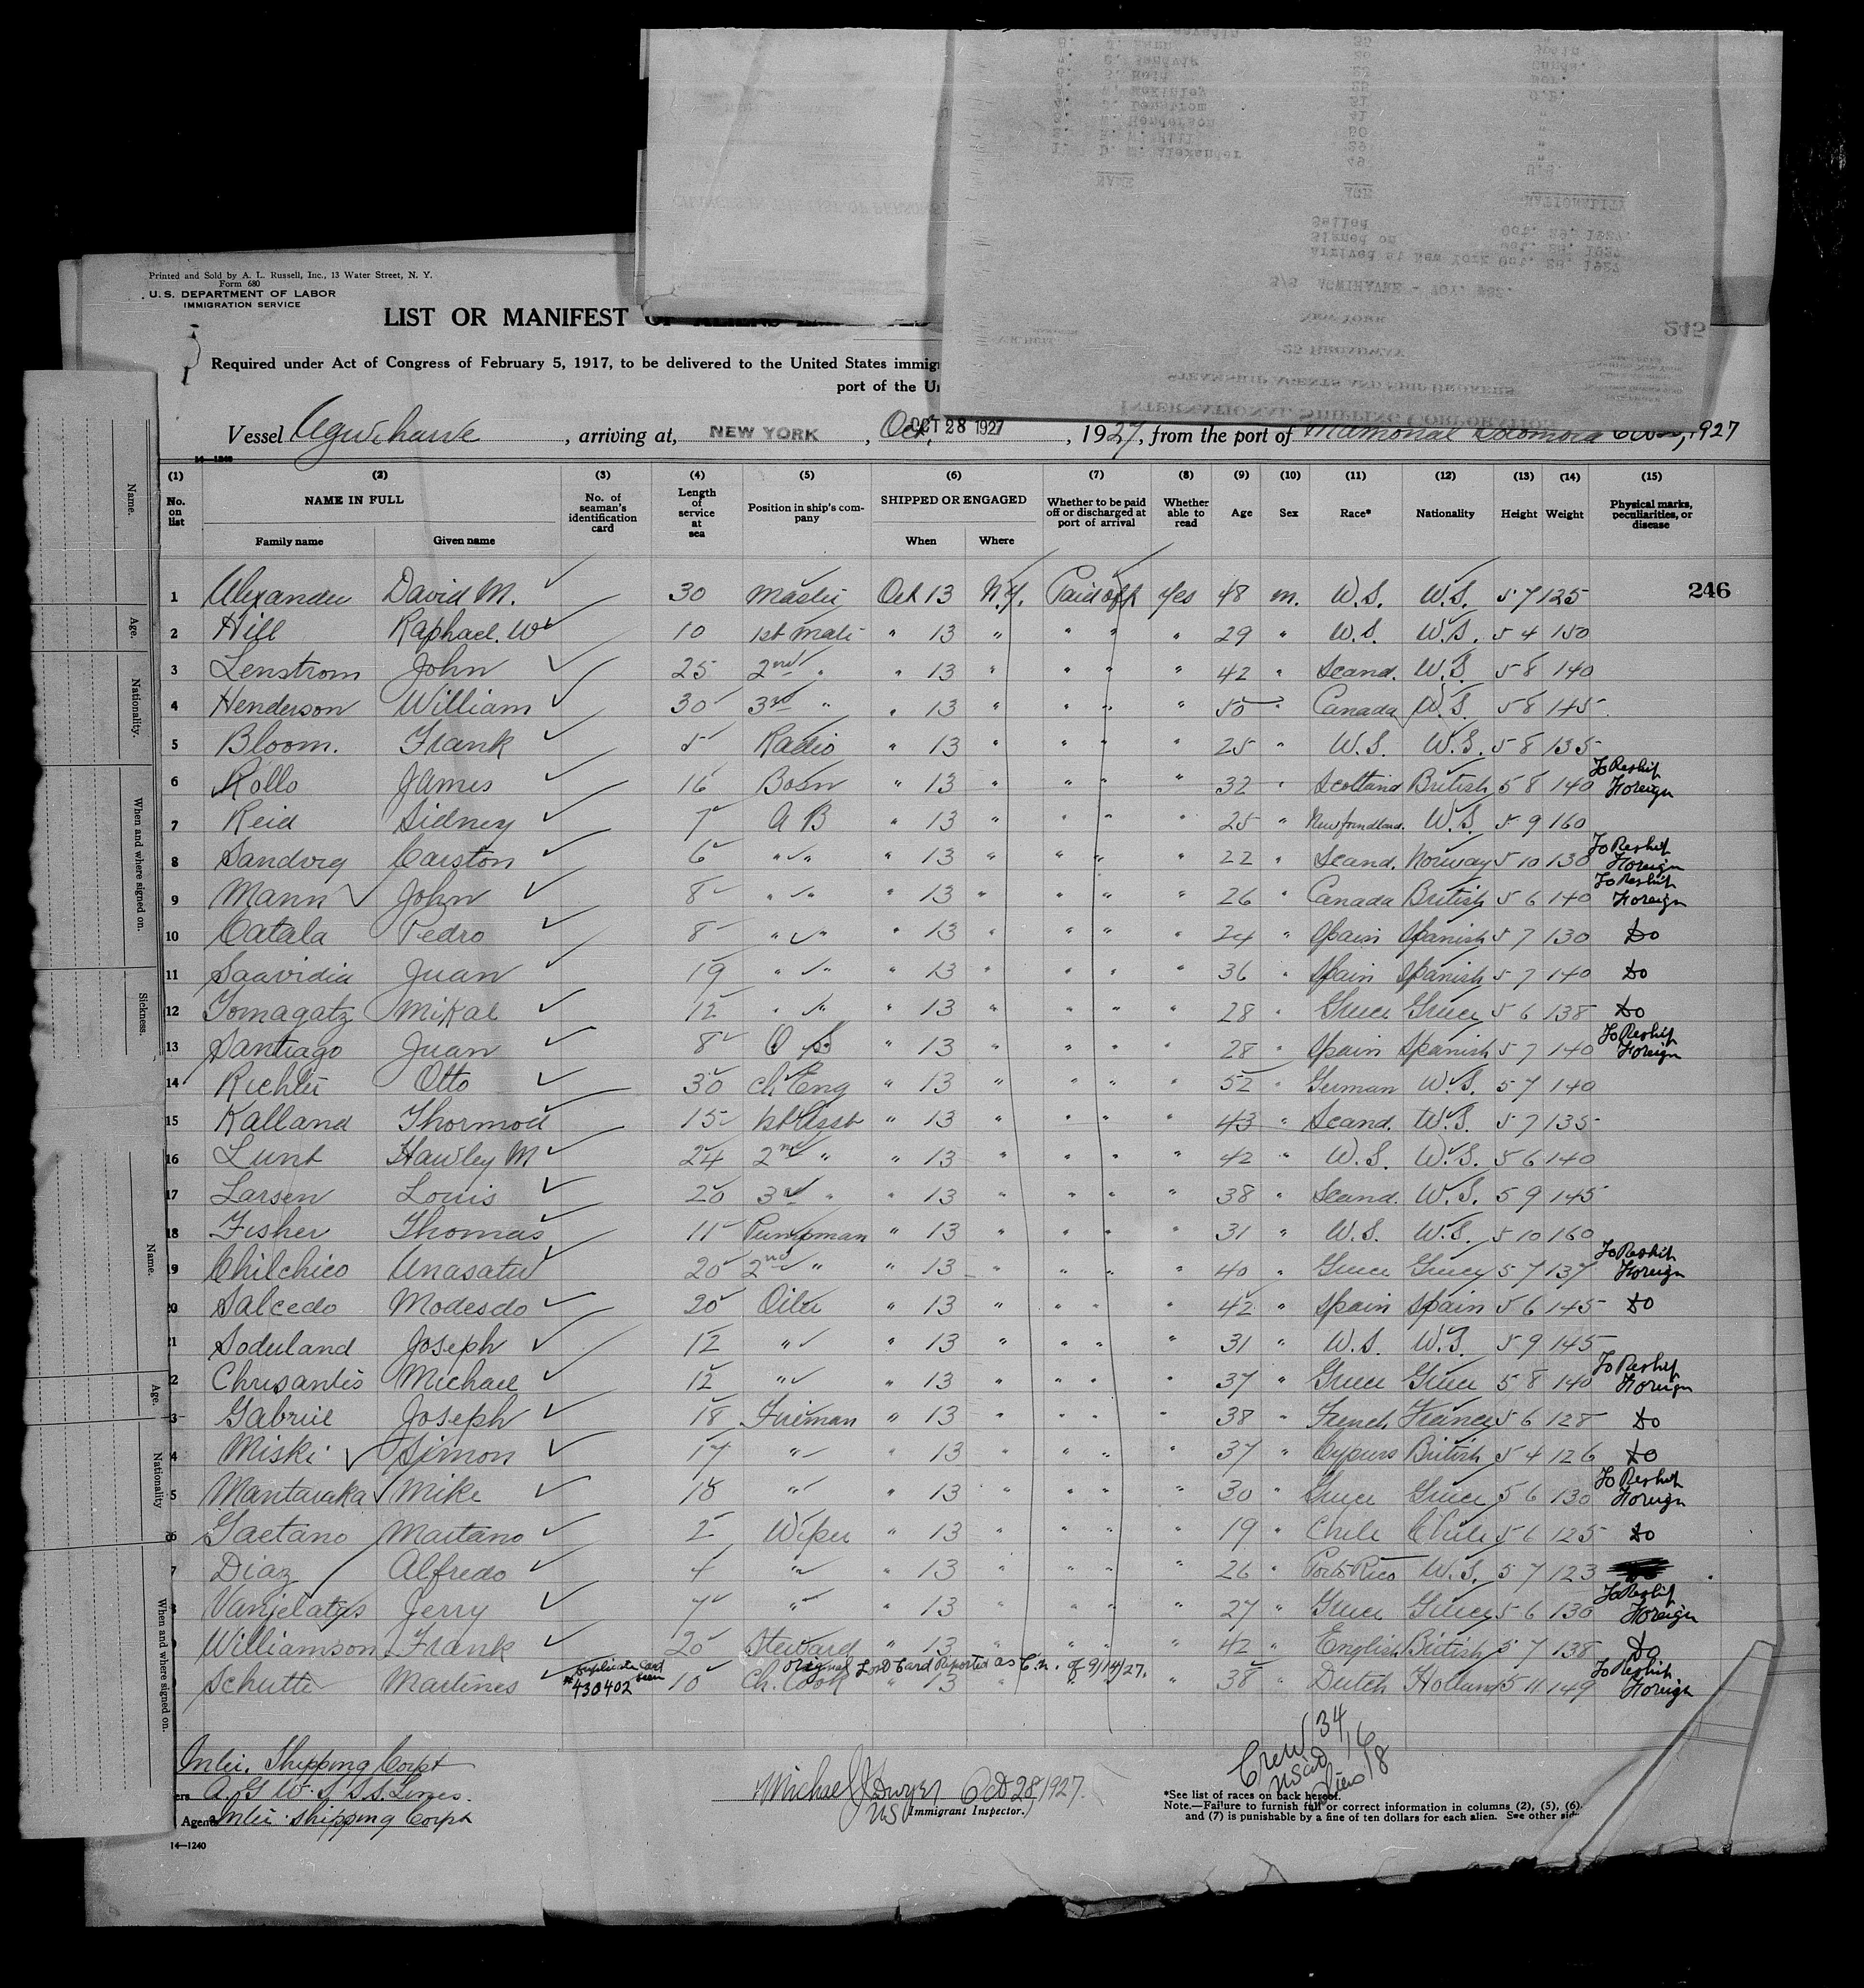 8. J. Mann 35
7. C. Sandvig 26 Canada.
6. S. Reid 22 Nor.
5. W. McKinley 25 U.S.
4. J. Lenstrom 31 "
3. W. Henderson 41 "
2. R. W. Hill 50 "
1. D. M. Alexander 29 "
49 U.S.
NAME AGE NATIONALITY
Sailed Oct. 29, 1927.
Signed on Oct. 28, 1927
Arrived at New York Oct. 28, 1927
S/S AGWIHAVRE - VOY.
NEW YORK 245
25 BROADWAY
STEAMSHIP AGENTS AND SHIP BROKERS
INTERNATIONAL SHIPPING CORPORATION
Printed and Sold by A. L. Russell, Inc., 13 Water Street, N. Y.
Form 680
U. S. DEPARTMENT OF LABOR
IMMIGRATION SERVICE
LIST OR MANIFEST OF ALIENS
Required under Act of Congress of February 5, 1917, to be delivered to the United States immig
port of the U
Vessel Agwihavre, arriving at, NEW YORK, Oct. OCT 28 1927, 1927, from the port of Mamonal Colombia 1927
14—1240
(1) (2) (3) (4) (5) (6) (7) (8) (9) (10) (11) (12) (13) (14) (15)
No. on list NAME IN FULL No. of seaman's identification card Length of service at sea Position in ship's company SHIPPED OR ENGAGED Whether to be paid off or discharged at port of arrival Whether able to read Age Sex Race* Nationality Height Weight Physical marks, peculiarities, or disease
Family name Given name When Where
1 Alexander David M. 30 Master Oct 13 N.Y. Paid off Yes 48 m. U.S. U.S. 5 7 125 246
2 Hill Raphael. W 10 1st Mate " 13 " " " " 29 " U.S. U.S. 5 4 150
3 Lenstrom John 25 2nd " " 13 " " " " 42 " Scand. U.S. 5 8 140
4 Henderson William 30 3rd " " 13 " " " " 50 " Canada U.S. 5 8 145
5 Bloom. Frank 5 Radio " 13 " " " " 25 " U.S. U.S. 5 8 135
6 Rollo James 16 Bosn " 13 " " " " 32 " Scotland British 5 8 140 To Reship Foreign
7 Reid Sidney 7 A B " 13 " " " " 25 " Newfoundland. U.S. 5 9 160
8 Sandvig Carston 6 " " " 13 " " " " 22 " Scand. Norway 5 10 130 To Reship Foreign
9 Mann John 8 " " " 13 " " " " 26 " Canada British 5 6 140 To Reship Foreign
10 Catala Pedro 8 " " " 13 " " " " 24 " Spain Spanish 5 7 130 Do
11 Saavidia Juan 19 " " " 13 " " " " 36 " Spain Spanish 5 7 140 Do
12 Tomagatz Mikal 12 " " " 13 " " " " 28 " Greece Greece 5 6 138 Do
13 Santiago Juan 8 O S " 13 " " " " 28 " Spain Spanish 5 7 140 To Reship Foreign
14 Richter Otto 30 Ch. Eng " 13 " " " " 52 " German U.S. 5 7 140
15 Kalland Thormod 15 1st Asst " 13 " " " " 43 " Scand. U.S. 5 7 135
16 Lunt Hawley M 24 2nd " " 13 " " " " 42 " U.S. U.S. 5 6 140
17 Larsen Louis 20 3rd " " 13 " " " " 38 " Scand. U.S. 5 9 145
18 Fisher Thomas 11 Pumpman " 13 " " " " 31 " U.S. U.S. 5 10 160
19 Chilchico Anasater 20 2nd " " 13 " " " " 40 " Greece Greece 5 7 137 To Reship Foreign
20 Salcedo Modesdo 20 Oiler " 13 " " " " 42 " Spain Spain 5 6 145 Do
1 Soderland Joseph 12 " " 13 " " " " 31 " U.S. U.S. 5 9 145
2 Chrisantis Michael 12 " " 13 " " " " 37 " Greece Greece 5 8 140 To Reship Foreign
3 Gabriel Joseph 18 Fireman " 13 " " " " 38 " French France 5 6 128 Do
4 Miski Simon 17 " " 13 " " " " 37 " Cypurs British 5 4 126 Do
5 Mantaraka Mike 18 " " 13 " " " " 30 " Greece Greece 5 6 130 To Reship Foreign
6 Gaetano Maitano 2 Wiper " 13 " " " " 19 " Chile Chile 5 6 125 Do
7 Diaz Alfredo 4 " " 13 " " " " 26 " Porto Rico U.S. 5 7 123
8 Vanjelatys Jerry 7 " " 13 " " " " 27 " Greece Greece 5 6 130 To Reship Foreign
Williamson Frank 20 Steward " 13 " " " " 42 " English British 5 7 138 Do
duplicate card seen original Lost Card Reported as C.N. of 9/14/27.
Schutte Martines #430402 10 Ch. Cook " 13 " " " " 38 " Dutch Holland 5 11 149 To Reship Foreign
Crew 34
USCit 16
Aliens 18
Inter. Shipping Corpt
A. G. W. I. S.S. Lines.
Agents Inter. Shipping Corpt
Michael J Dwyer Oct 28 1927.
USI
Immigrant Inspector.
*See list of races on back hereof.
Note.—Failure to furnish full or correct information in columns (2), (5), (6)
and (7) is punishable by a fine of ten dollars for each alien. See other sid
14—1240
Name.
Age.
Nationality.
When and where signed on.
Sickness.
Name.
Age.
Nationality
When and where signed on.